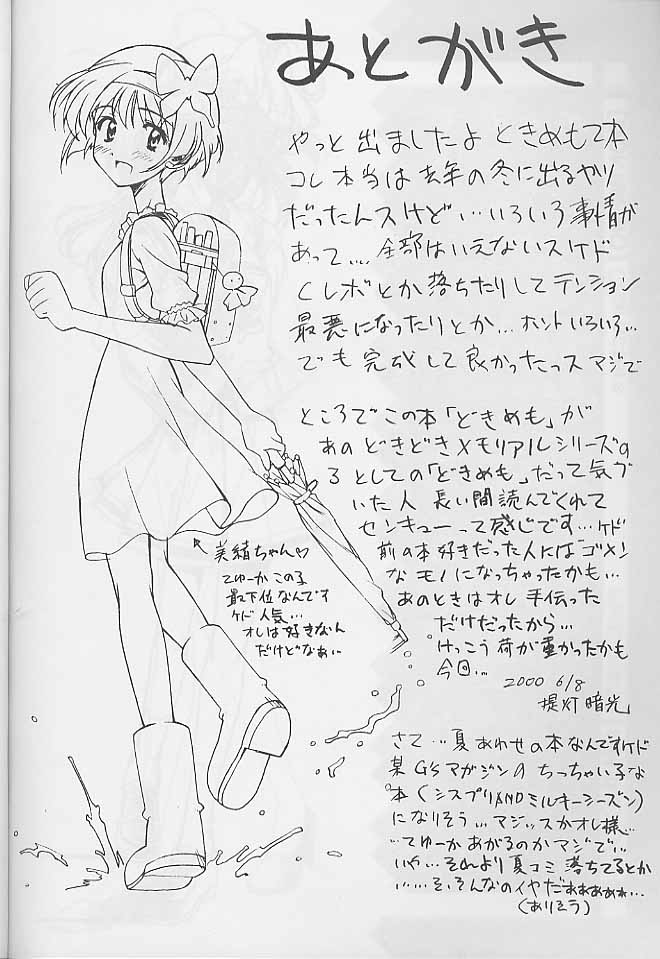 あとがき
やっと出ましたよ ときめもて本
コレ本当は去年の冬に出るやり
だったんスけど…いろいろ事情が
あって… 全部はいえないスケド
Cレボとか落ちたりしてテンション
最悪になったりとか…ホントいろいろ…
でも完成して良かったっスマジで
ところでこの本「どきめも」が
あのどきどきメモリアルシリーズの
3としての「どきめも」だって気づ
いた人 長い間読んでくれて
センキューって感じです…ケド
前の本好きだった人には"ゴメン"
なモノになっちゃったかも…
あのときはオレ手伝った
だけだったから…
けっこう荷が重かったかも
今回…
2000 6/8
提灯暗光
美緒ちゃん♡
てゆーかこの子
最下位なんです
ケド人気…
オレは好きなん
だけどなぁ…
さて…夏あわせの本なんですケド
某G'sマガジンのちっちゃい子な
本(シスプリANDミルキーシーズン)
になりそう…マジッスかオレ様…
…てゆーかあがるのかマジで…
いや…それより夏コミ落ちてるとか
……そ、そんなのイヤだぁぁぁぁぁ…
(ありそう)